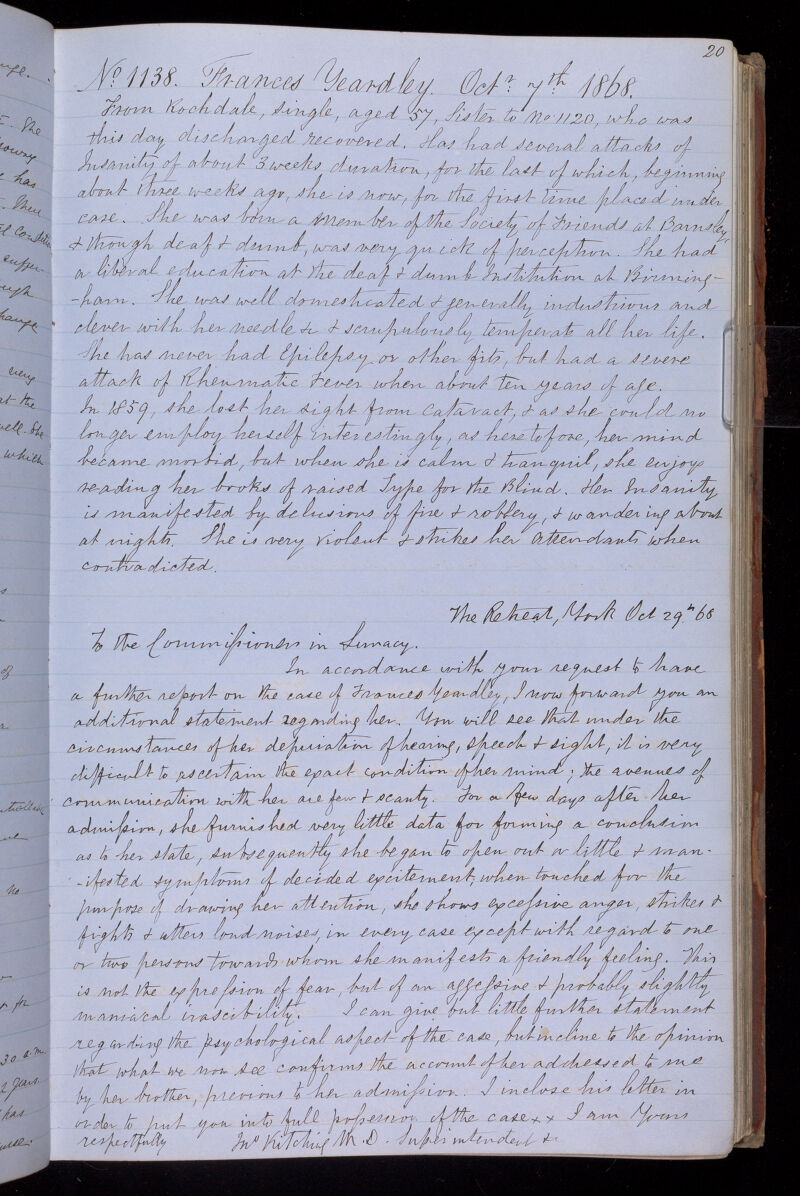 20
No. 1138. Frances Yeardley. Octr 7th 1868.
From Rochdale, single, aged 57, Sister to No 1120, who was
this day discharged recovered. Has had several attacks of
Insanity of about 3 weeks duration, for the last of which, beginning
about three weeks ago, she is now, for the first time placed under
care. She was born a Member of the Society of Friends at Barnsley,
& though deaf & dumb, was very quick of perception. She had
a liberal education at the deaf & dumb Institution at Birming-
-ham. She was well domesticated & generally industrious and
clever with her needle &c & scrupulously temperate all her life.
She has never had Epilepsy or other fits, but had a severe
attack of Rheumatic Fever when about ten years of age.
In 1859, she lost her sight from Cataract, & as she could no
longer employ herself interestingly, as heretofore, her mind
became morbid, but when she is calm & tranquil, she enjoys
reading her books of raised Type for the Blind. Her Insanity
is manifested by delusions of fire & robbery, & wandering about
at nights. She is very violent & strikes her Attendants when
contradicted.
The Retreat, York Oct 29th 68
To the Commissioners in Lunacy.
In accordance with your request to have
a further report on the case of Frances Yeardley, I now forward you an
additional statement regarding her. You will see that under the
circumstances of her depriation of hearing, speech & sight, it is very
difficult to ascertain the exact condition of her mind; the avenues of
communication with her are few & scanty. For a few days after her
admission, she furnished very little data for forming a conclusion
as to her state, subsequently she began to open out a little & man-
-ifested symptoms of decided excitement; when touched for the
purpose of drawing her attention, she shows excessive anger, strikes &
fights & utters loud noises, in every case except with regard to one
or two persons towards whom she manifests a friendly feeling. This
is not the expression of fear, but of an aggessive & probably slightly
maniacal irascibility. I can give but little further statement
regarding the psychological aspect of the case, but incline to the opinion
that what we now see confirms the account of her addressed to me
by her brother, previous to her admission. I inclose his letter in
order to put you into full possession of the case x x I am Yours
respectfully Jno Kitching M.D. Superintendent &c